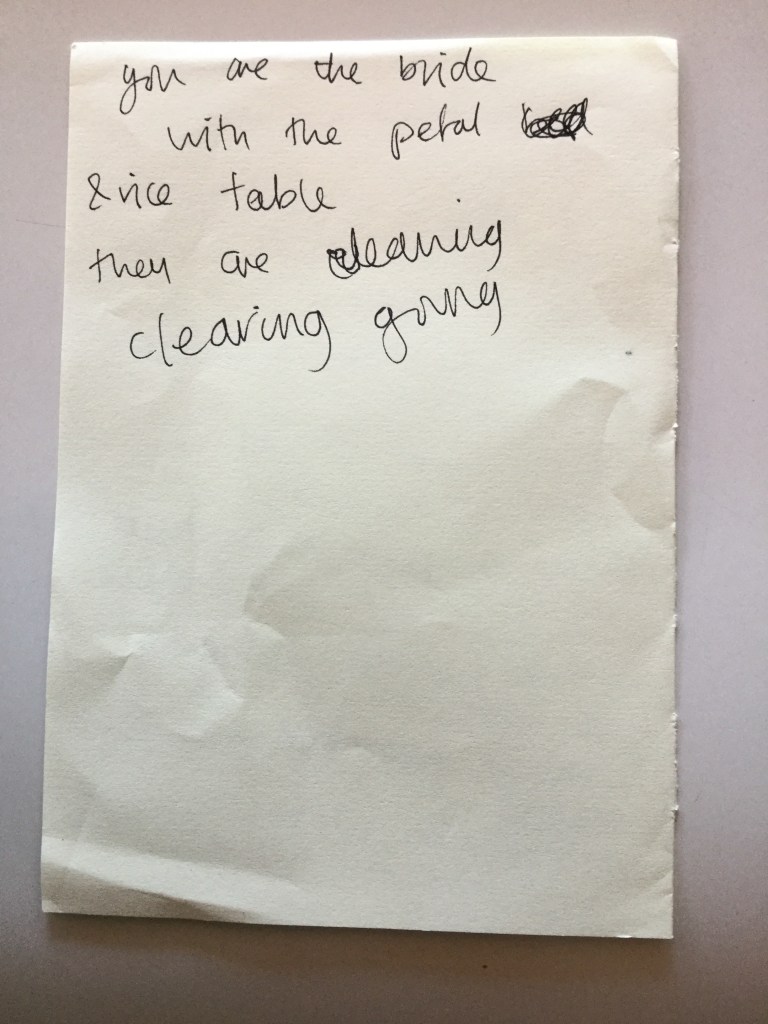 you are the bride
with the petal
& rice table
they are cleaning
clearing going